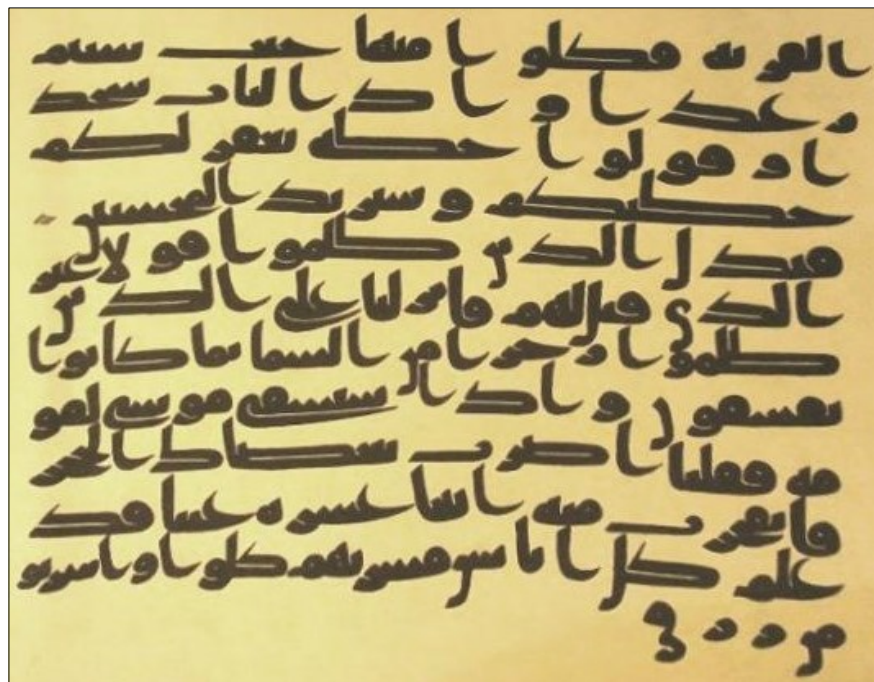 القرية فكلوا منها حيث شئتم
رغدا واد ا الباب سجد
ا وقولوا حطة نغفر لكم
خطيكم وسنزيد المحسنين
فبدل الذين ظلموا قولا غير
الذي قيل لهم فانزلنا على الذين
ظلموا رجزا من السما بما كانوا
يفسقون واذ استسقى موسى لقو
مه فقلنا اضرب بعصاك الحجر
فانفجرت منه اثنتا عشرة عينا قد
علم كل اناس مشربهم كلوا واشربو
من رزق